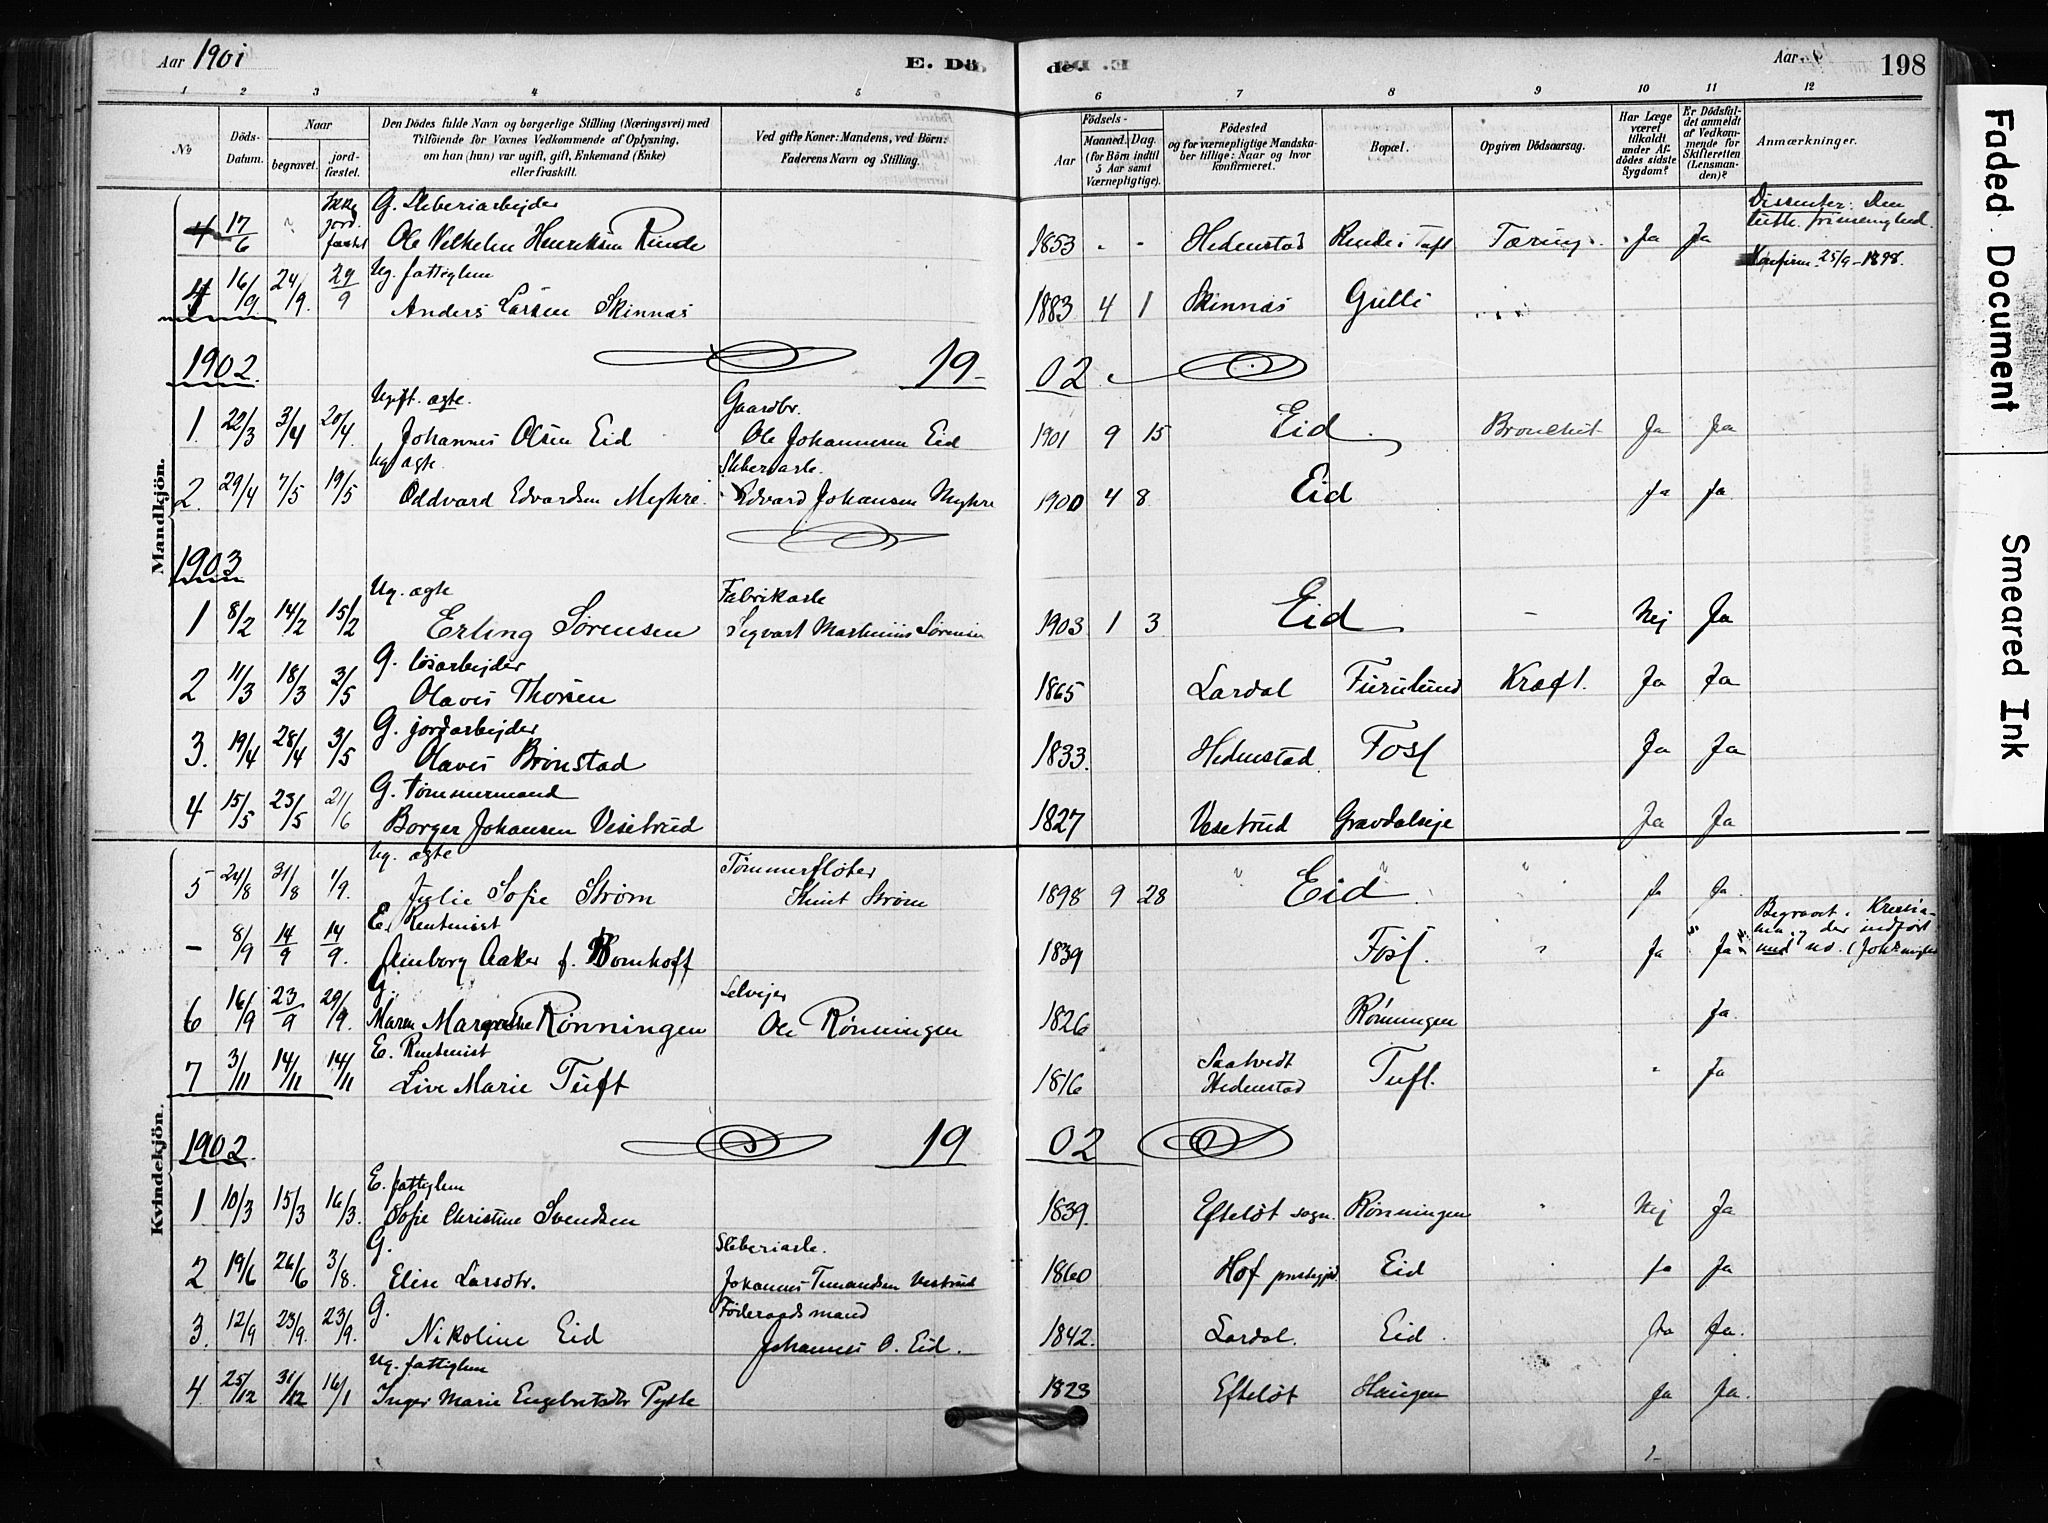 Aar 1901 E. Dö de. Aar 198
1 2 3 4 5 6 7 8 9 10 11 12
No Döds-Datum. Naar begravet. jord-fæstet. Den Dödes fulde Navn og borgerlige Stilling (Næringsvei) med Tilföiende for Voxnes Vedkommende af Oplysning, om han (hun) var ugift, gift, Enkemand (Enke) eller fraskilt. Ved gifte Koner: Mandens, ved Börn: Faderens Navn og Stilling. Födsels- Aar Maaned. Dag. (for Börn indtil 5 Aar samt Værnepligtige). Födested og for værnepligtige Mandskaber tillige: Naar og hvor konfirmeret. Bopæl. Opgiven Dödsaarsag. Har Læge været tilkaldt under Afdödes sidste Sygdom? Er Dödsfaldet anmeldt af Vedkommende for Skifteretten (Lensmanden)? Anmærkninger.
Mandkjön.
G. Sleberiarbejder
4 17/6 " Ikke jord fæstet Ole Vilhelm Henriksen Rinde 1853 - - Hedenstad Rinde i Tuft Tæring. Ja Ja Dissenter: Den luth. frimenighed.
Ug. fattiglem
4 16/9 24/9. 29/9 Anders Larsen Skinnas 1883 4 1 Skinnas Gulli Konfirm. 25/9-1898.
1902. 19- 02
Ugift. ægte. Gaardbr.
1. 22/3 3/4 20/4. Johannes Olsen Eid Ole Johannesen Eid 1901 9 15 Eid Bronchit Ja Ja
Ug ægte. Sleberarb.
2. 29/4 7/5 19/5 Oddvard Edvardsen Myhre. Edvard Johansen Myhre 1900 4 8 Eid Ja Ja
1903
Ug. ægte Fabrikarb
1 8/2 14/2 15/2 Erling Sørensen Sigvart Martinius Sørensen 1903 1 3 Eid - Nej Ja
G. løsarbejder
2 11/3 18/3 3/5 Olaves Thorsen 1865 Lardal Furulund Kræft. Ja Ja
G. jordarbejder
3. 19/4 28/4 3/5 Olaves Brønstad 1833. Hedenstad. Fosf Ja Ja
G. tømmermand
4 15/5 23/5 21/6 Borger Johansen Vesetrud 1827 Vesetrud Gravdalseje Ja Ja
Kvindekjön.
Ug. ægte Tømmerfløter
5 24/8 31/8 1/9. Julie Sofie Strøm Knut Strøm 1898 9 28 " Eid " " Ja Ja
E. Rentenist
- 8/9 14/9 14/9. Aaker f. Bomhoff 1839 Fosf. " Ja Ja Begravet i Kristiania, og der indført
G. Selvejer
6 16/9 23/9 29/9. Maren Margrethe Rønningen Ole Rønningen 1826 Rønningen Ja.
E. Rentenist
7 3/11 14/11 14/11 Live Marie Tuft 1816 Saatvedt Hedenstad Tuft. " Ja
1902. 19 02
E. fattiglem
1 10/3 15/3 16/3. Sofie Christine Svendsen 1839. Efteløt sogn. Rønningen " Nej Ja
G. Sleberiarb.
2 19/6 26/6 3/8. Elise Larsdtr. Johannes Vestrud 1860 Hof Eid Ja Ja
G. Føderaadsmand
3. 12/9 23/9. 23/9. Nikoline Eid Johannes O. Eid. 1842. Lardal. Eid. Ja Ja.
Ug. fattiglem
4 25/12 31/12 16/1 Inger Marie Engebretsdtr 1823 Efteløt Haugen Ja Ja.
Faded Document
Smeared Ink